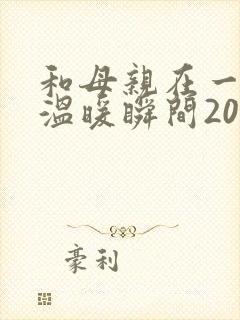 和母親在一
溫暖瞬間20
豪利